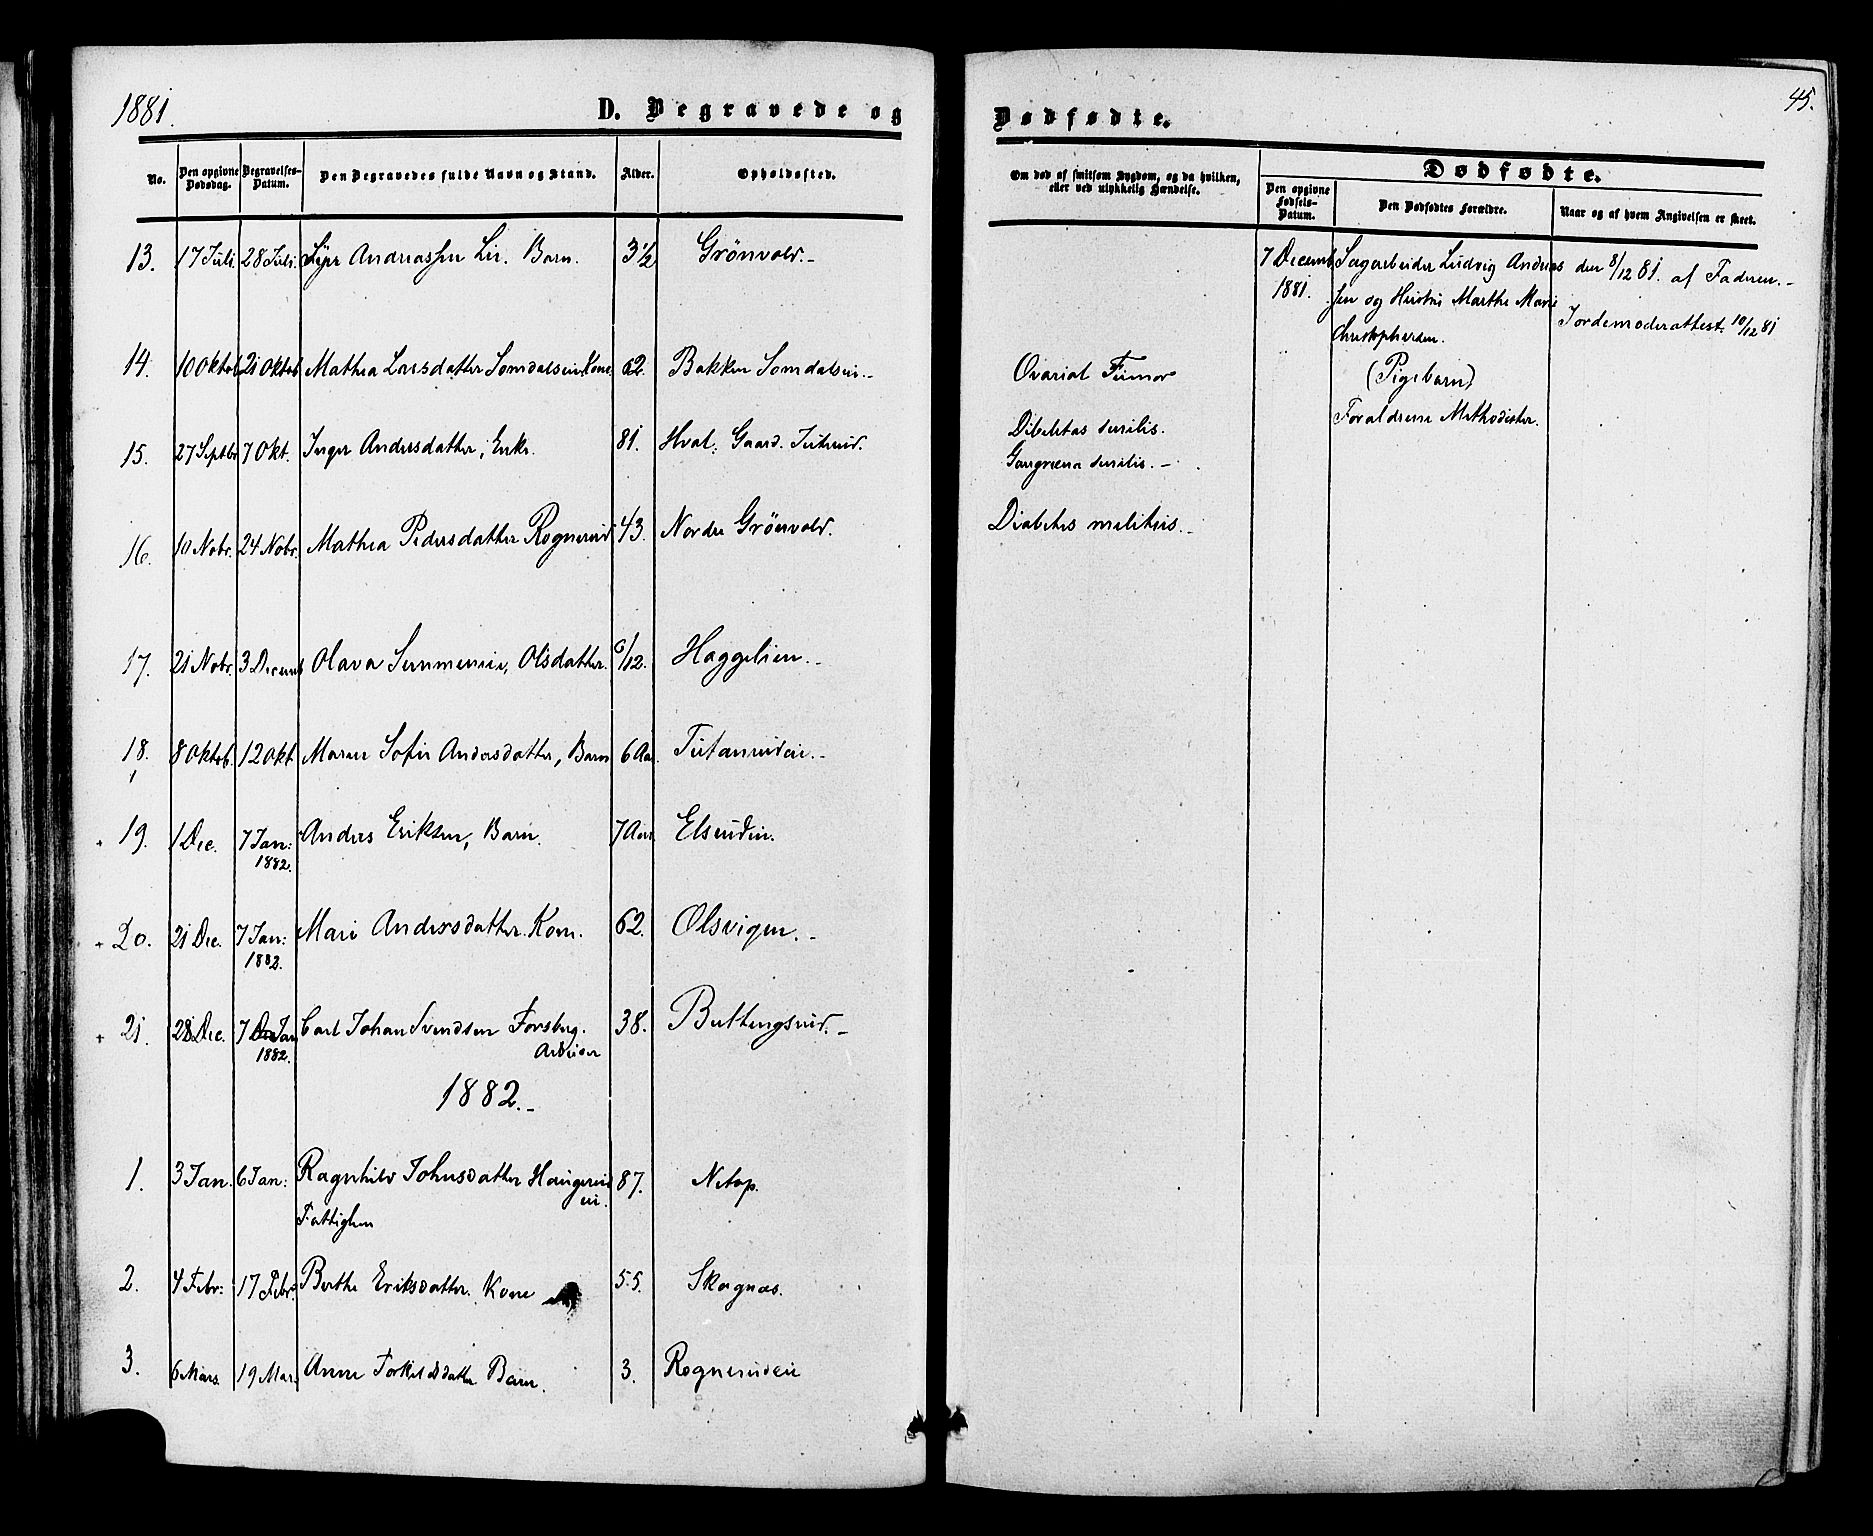 1881.
D. Begravede og
No. Den opgivne Dødsdag. Begravelses-Datum. Den Begravedes fulde Navn og Stand. Alder. Opholdssted.
13. 17 Juli. 28 Juli. Andreassen Lie. Barn. 3 1/2 Grönvold.-
14. 10 Oktob 21 Oktob Mathea Larsdatter Somdalseie. Kone. 62. Bakken Somdalseie.-
15. 27 Septbr 7 Okt. Inger Andersdatter, Enke. 81. Hval. Gaard.
16. 10 Nobr. 24 Nobr. Mathea Pedersdatter Rognerud 43. Nordre Grönvold.
17. 21 Nobr. 3 Decemb Olava Olsdatter. 6/12. Haggelien.-
18. 8 Oktob. 12 Okt. Maren Sofie Andersdatter, Barn 6 Aar.
19. 1 Dec. 7 Jan: 1882. Anders Eriksen, Barn. 7 Aar Elsrudeie.
20. 21 Dec. 7 Jan: 1882. Mari Andersdatter. Kone. 62. Olsvigen.-
21. 28 Dec. 7 Jan 1882. Carl Johan Svendsen Forsberg. Arbeider 38. Buttingsrud.-
1882.-
1. 3 Jan. 6 Jan: Ragnhild Johnsdatter Haugerud eie. 87. Netop.
Fattiglem
2. 4 Febr: 17 Febr. Berthe Eriksdatter. Kone 55. Skagnæs.
3. 6 Mars. 19 Mar. Anne Torkildsdatter Barn. 3. Rognerudeie
45.
Dødfødte.
Om død af smitsom Sygdom, og da hvilken, eller ved ulykkelig Hændelse.
Dødfødte.
Den opgivne Fødsels-Datum. Den Dødfødtes Forældre. Naar og af hvem Angivelsen er skeet.
7 Decemb 1881. Sagarbeider Ludvig Andreas
sen og Hustru Marthe Marie
Christophersen.
(Pigebarn)
Forældrene Methodister.
den 8/12 81. af Faderen.-
Jordemoderattest 10/12 81
Ovarial Tumor
Dibeletas senilis.
Gangræna senilis.-
Diabetes melitus.-